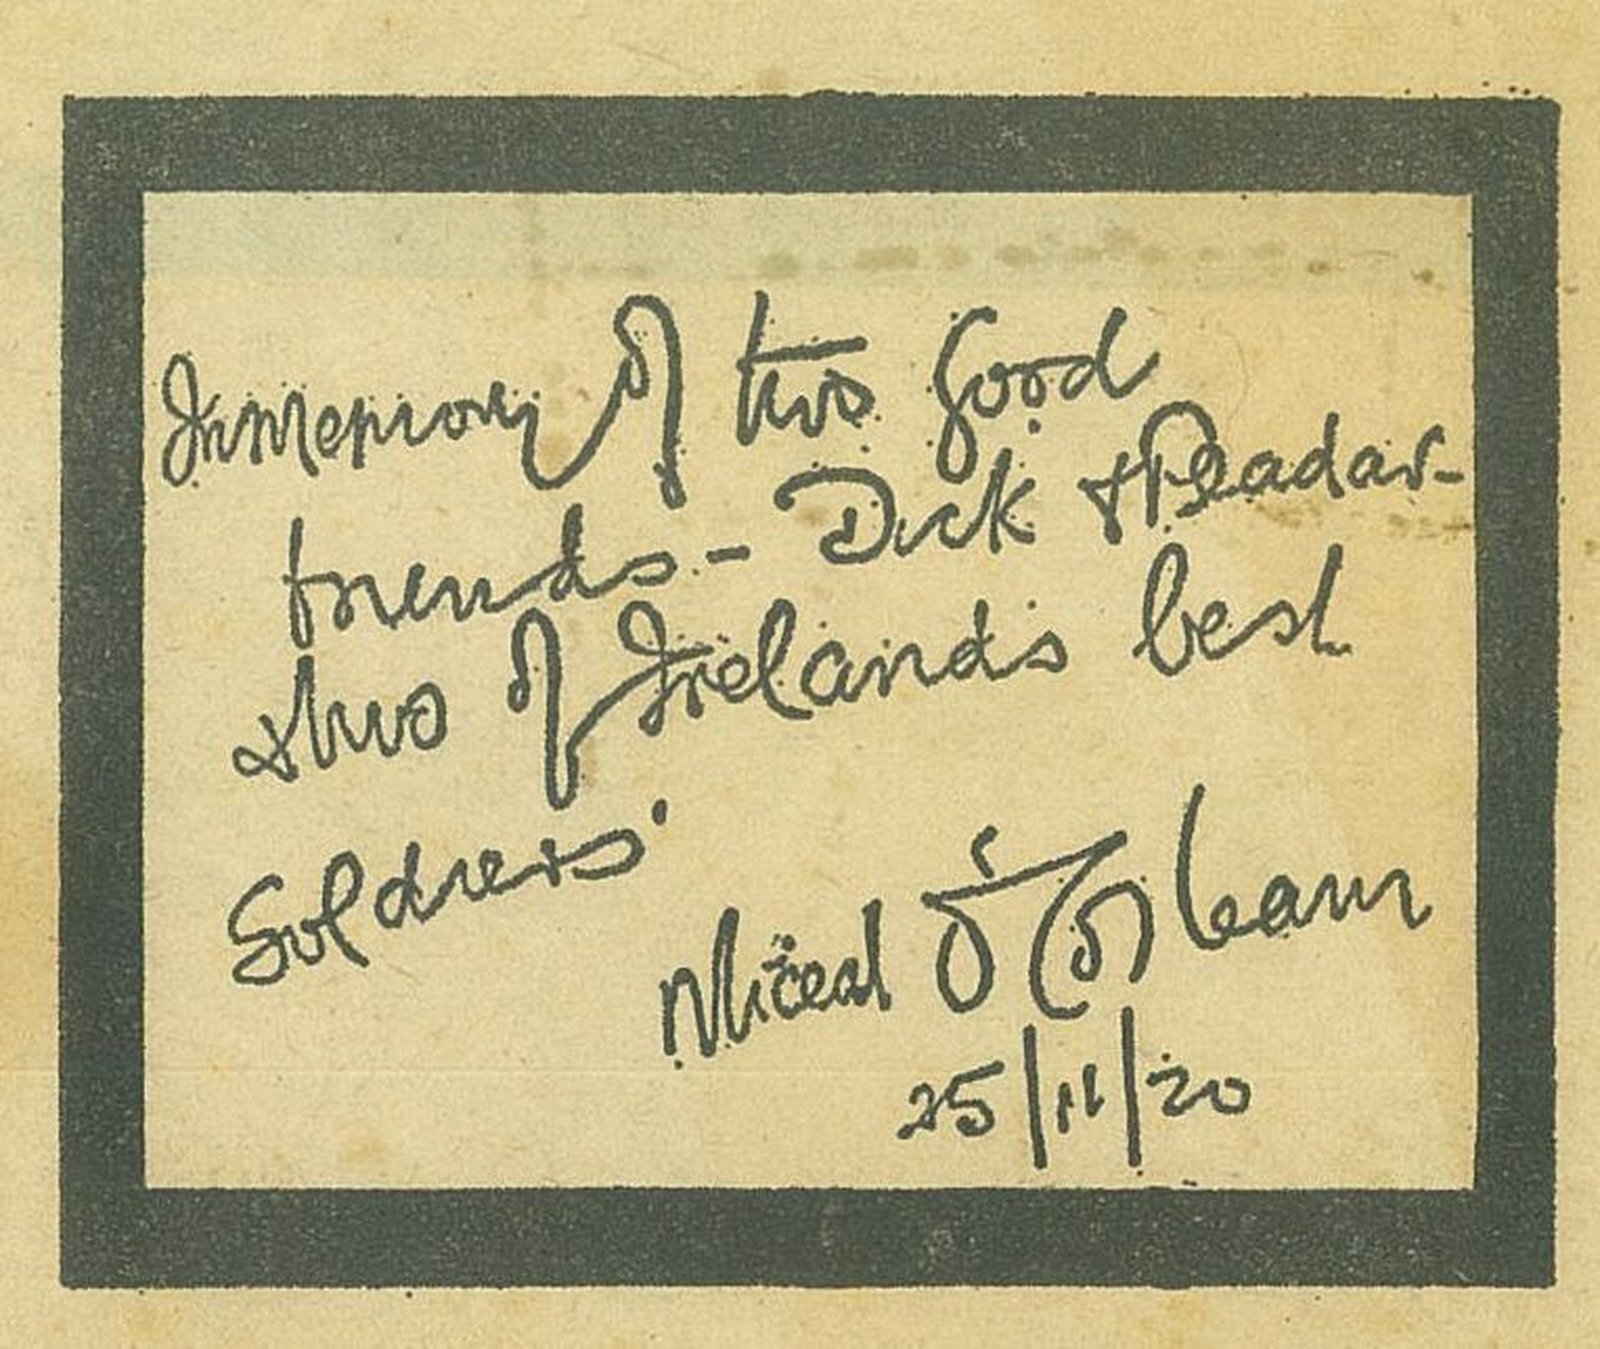 In memory of two good
friends - Dick & Peadar -
& two of Irelands best
Soldiers.
Míceál Ó Coileáin
25/11/20